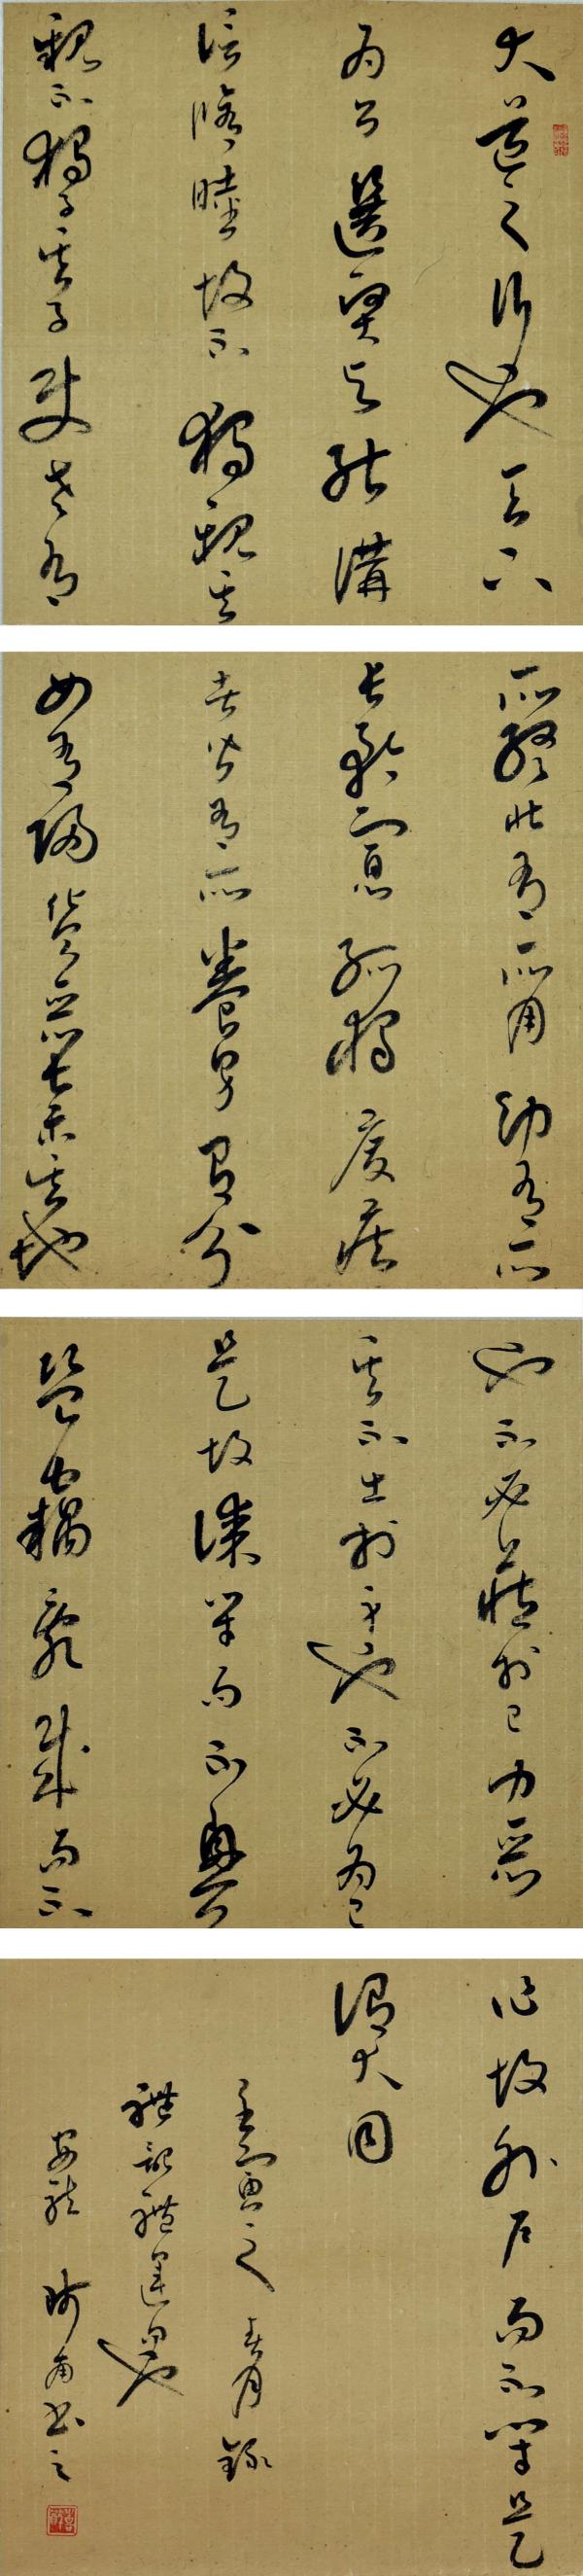 大道之行也天下
為公選賢與能講
信脩睦故不獨親其
親不獨子其子使老有
所終壯有所用幼有所
長矜寡孤獨廢疾
者皆有所養男有分
女有歸貨惡其棄於地
也不必藏於己力惡
其不出於身也不必為己
是故謀閉而不興
盜竊亂賊而不
作故外戶而不閉是
謂大同
壬寅之春月錄
禮記禮運也
書之